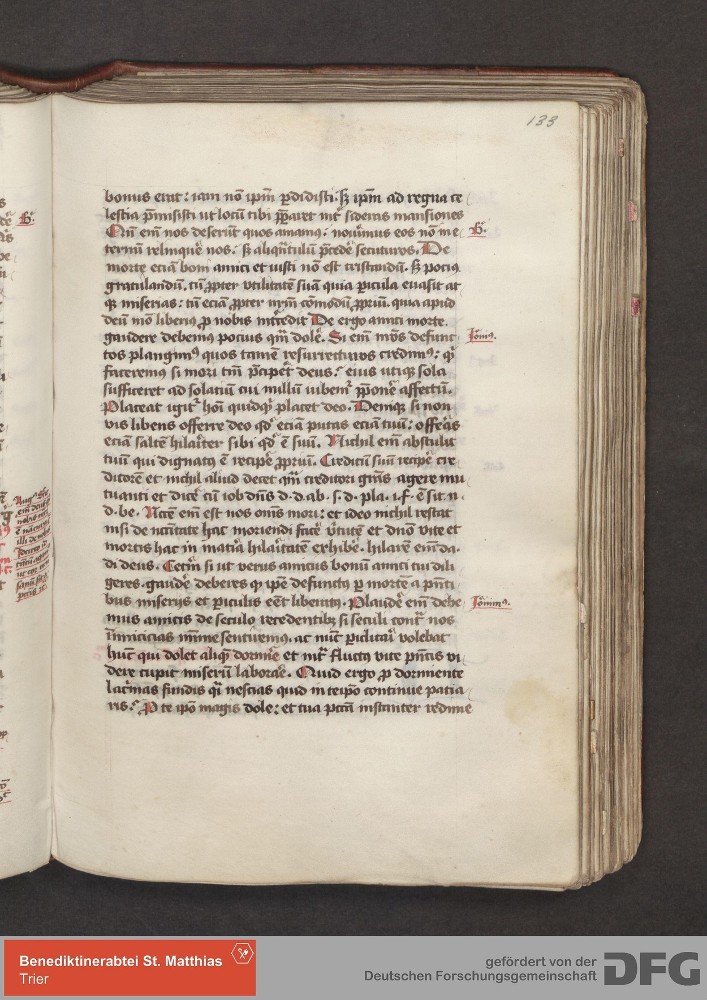 133
bonus erat: iam nō ip̄m ꝑdidisti. sꝫ ip̄m ad regna ce
lestia p̄misisti ut locū tibi p̄paret int̄ sideras mansiones
Qn̄ em̄ nos deserūt quos amamꝰ: nouimus eos nō in e
ternū relinquē nos: sꝫ aliqn̄tulū p̄cedē secuturos. De
morte eciā boni amici et iusti nō est tristandū. sꝫ pociꝰ
gratulandū, tū ꝓpter vtilitatē suā quia picula euasit at
qꝫ miserias: tū eciā ꝓpter nr̄m cōmodū ꝓpriū. quia apud
deū mō liberiꝰ ꝓ nobis int̄cedit De ergo amici morte
gaudere debemꝰ pocius qm̄ dolē. Si em̄ mōs defunc
tos plangimꝰ quos tamē resurrecturos credimꝰ: qͥ
faceremus si mori tm̄ p̄cipēt deus: eius utiqꝫ sola
sufficeret ad solatiū cui nullū iubemr̄ p̄ponē affectū.
Placeat igit̄ hōi quidqͥ placet deo. Deniqꝫ si non
vis libens offerre deo qd̄ eciā putas eciā tuū: offeras
eciā saltē hilarit̄er sibi qd̄ ē suū. Nichil em̄ abstulit
tuū qui dignatꝰ ē recipē ꝓpriū. Creditū suū recipē cre
ditorē et nichil aliud decet qm̄ creditori grās agere mu
tuanti et dicē cū iob dn̄s d. d. ab. s. d. pla. i. f. ē sit n.
d. be. Nccē em̄ est nos om̄s mori: et ideo nichil restat
nisi de nccitate hac moriendi facē v̄tutē et dn̄o vite et
mortis hac in matīa hilaritatē exhibē. hilarē em̄ da.
di deus. Cet̄m si ut verus amicus bonū amici tui dili
geres. gaudē deberes qꝫ ip̄e defunctꝰ ꝑ mortē a p̄nti
bus miserijs et ꝑiculis eēt liberatꝰ. Plaudē em̄ debe
mus amicis de seculo recedentibꝫ si seculi cont̄ nos
inimicicias mīme sentiremꝰ. ac nūc piclitari volebat
hūc qui dolet aliqͣ dormīe et int̄ fluctꝰ vite p̄ntis vi
dere cupit miserū laborāe. Quid ergo ꝓ dormiente
lacr̄mas fundis qͥ nescias quid in teip̄o continue patia
ris: Pro te ip̄o magis dole: et tua pctā instanter redime
B.
Ioīnꝰ.
Ioīmꝰ.
Benediktinerabtei St. Matthias
Trier
gefördert von der
Deutschen Forschungsgemeinschaft
DFG